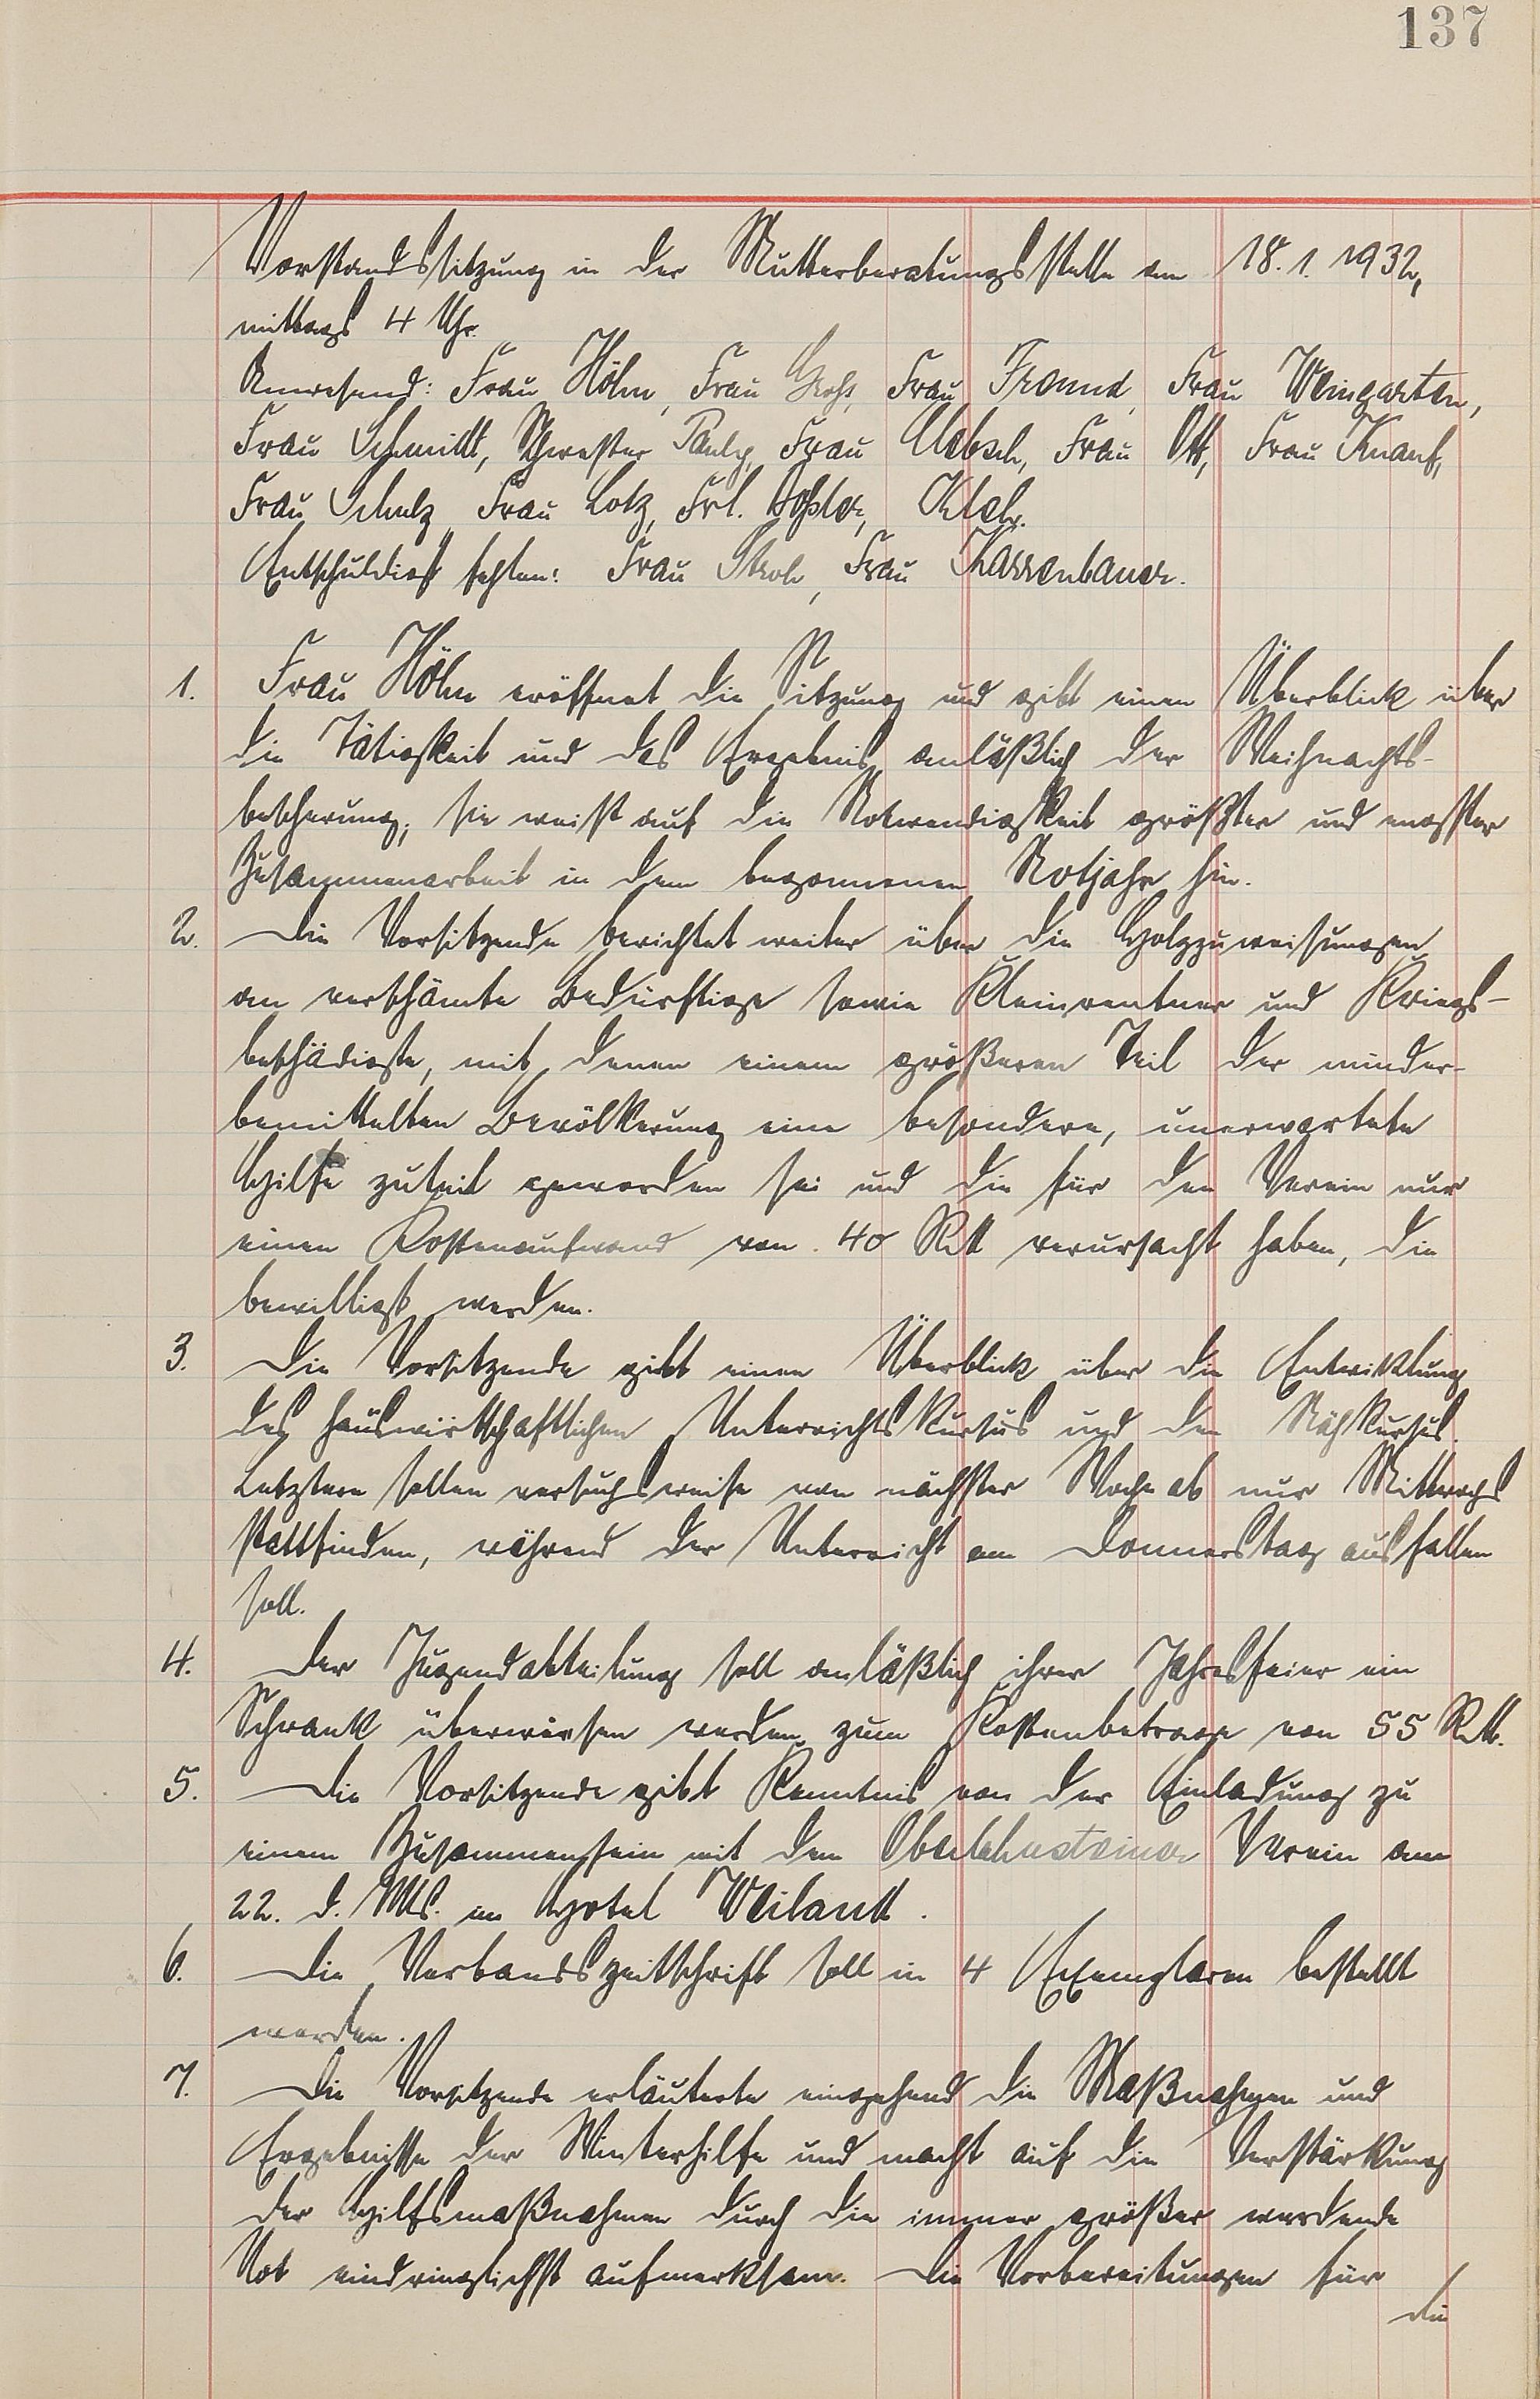 137
Vorstandssitzung in der Mutterberatungsstelle am 18.1.1932,
mittags 4 Uhr.
Anwesend: Frau Höhn, Frau Groß, Frau Freund, Frau Weingarten,
Frau Schmidt, Schwester Pauly, Frau Ott, Frau Knauf,
Frau Schulz, Frau Lotz, Frl.
Entschuldigt fehlen: Frau Stroh, Frau Karrenbauer.
1. Frau Höhn eröffnet die Sitzung und gibt einen Überblick über
die Tätigkeit und das Ergebnis anläßlich der Weihnachts-
bescherung; sie weist auf die Notwendigkeit größter und engster
Zusammenarbeit in dem begonnenen Notjahr hin.
2. Die Vorsitzende berichtet weiter über die Holzzuweisungen
an verschämte Bedürftige sowie Kleinrentner und Kriegs-
beschädigte, mit denen einem größeren Teil der minder-
bemittelten Bevölkerung eine besondere, unerwartete
Hilfe zuteil geworden sei und die für den Verein nur
einen Kostenaufwand von 40 RM verursacht haben, die
bewilligt werden.
3. Die Vorsitzende gibt einen Überblick über die Entwicklung
des hauswirtschaftlichen Unterrichtskursus und den Nähkursus.
Letztere sollen versuchsweise von nächster Woche ab nur Mittwochs
stattfinden, während der Unterricht am Donnerstag ausfallen
soll.
4. Der Jugendabteilung soll anläßlich ihrer Jahresfeier ein
Schrank überwiesen werden zum Kostenbetrage von 55 RM.
5. Die Vorsitzende gibt Kenntnis von der Einladung zu
einem Zusammensein mit dem Oberlahnsteiner Verein am
22. d. Mts. im Hotel Weiland.
6. Die Verbandszeitschrift soll in 4 Exemplaren bestellt
werden.
7. Die Vorsitzende erläuterte eingehend die Maßnahmen und
Ergebnisse der Winterhilfe und macht auf die Verstärkung
der Hilfsmaßnahmen durch die immer größer werdende
Not eindringlichst aufmerksam. Die Vorbereitungen für
die